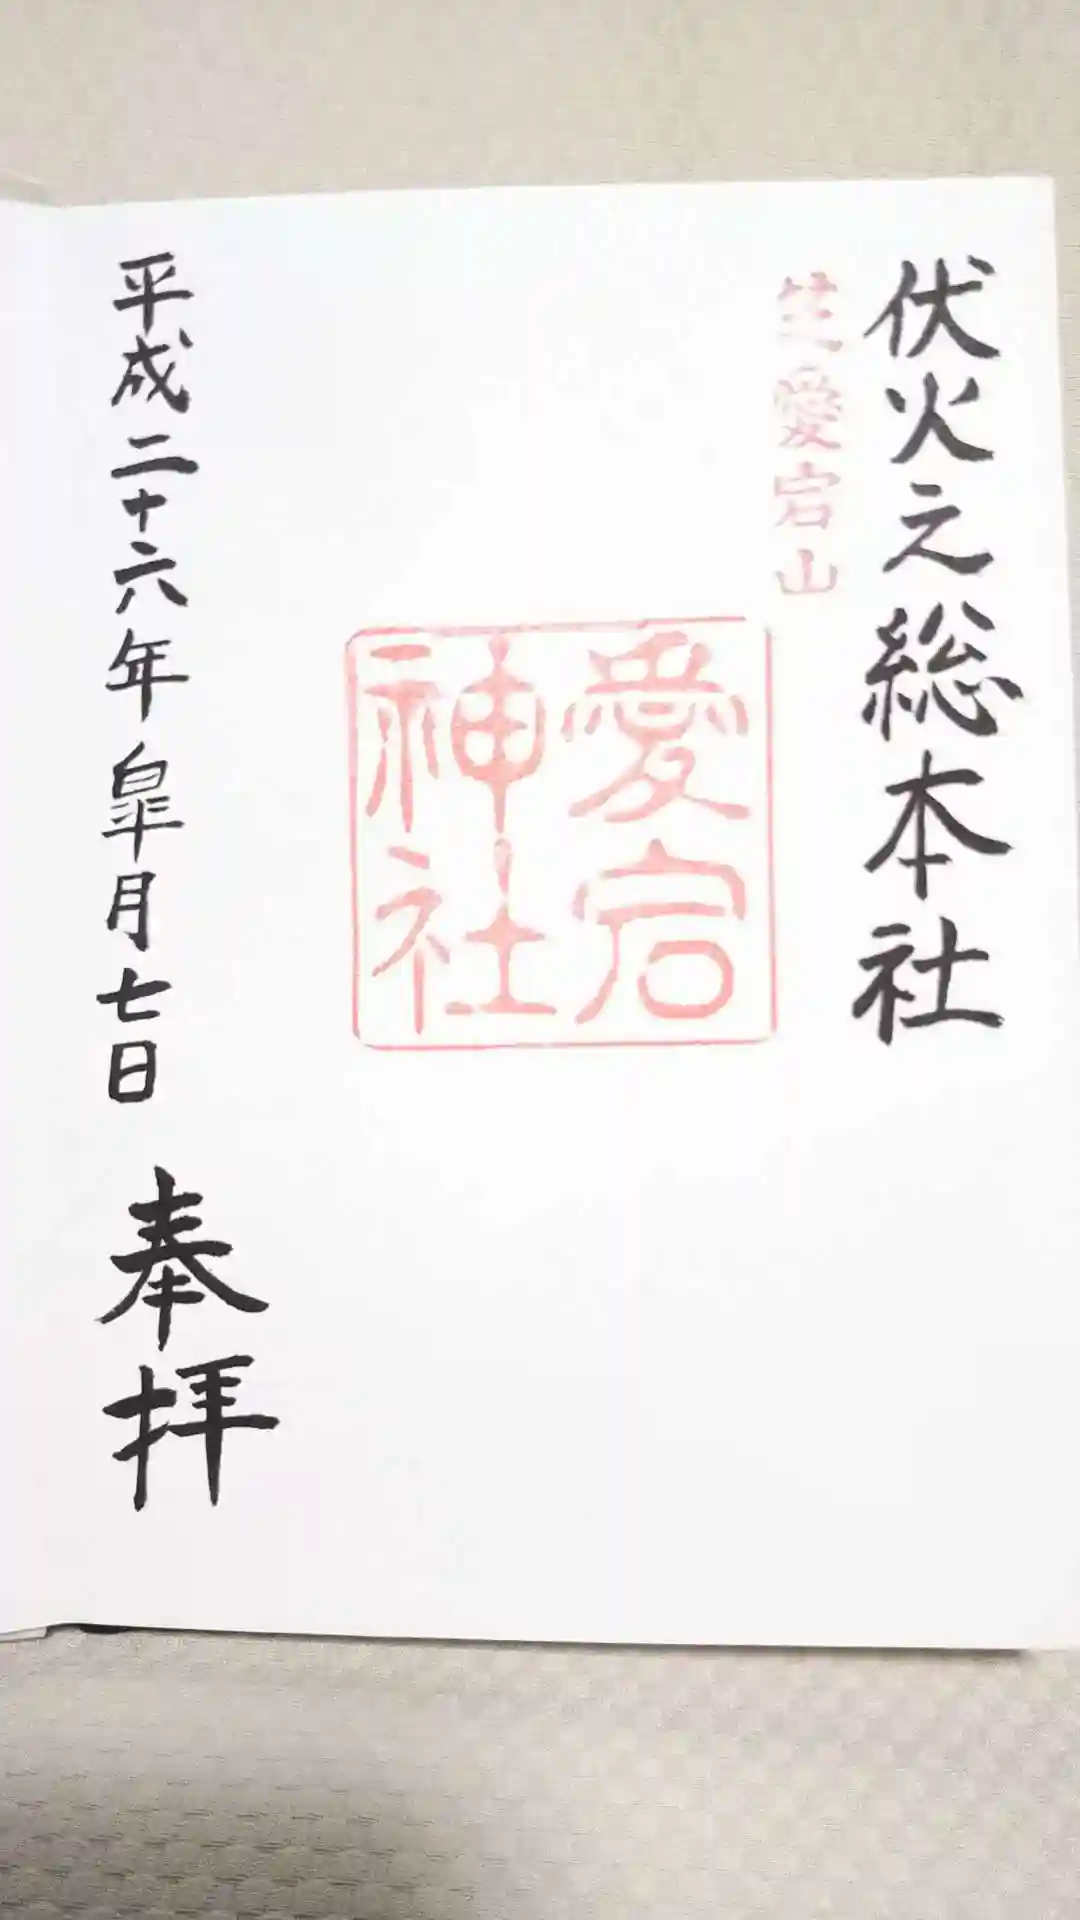 伏火之総本社
芝愛宕山
愛宕
神社
平成二十六年皐月七日 奉拝